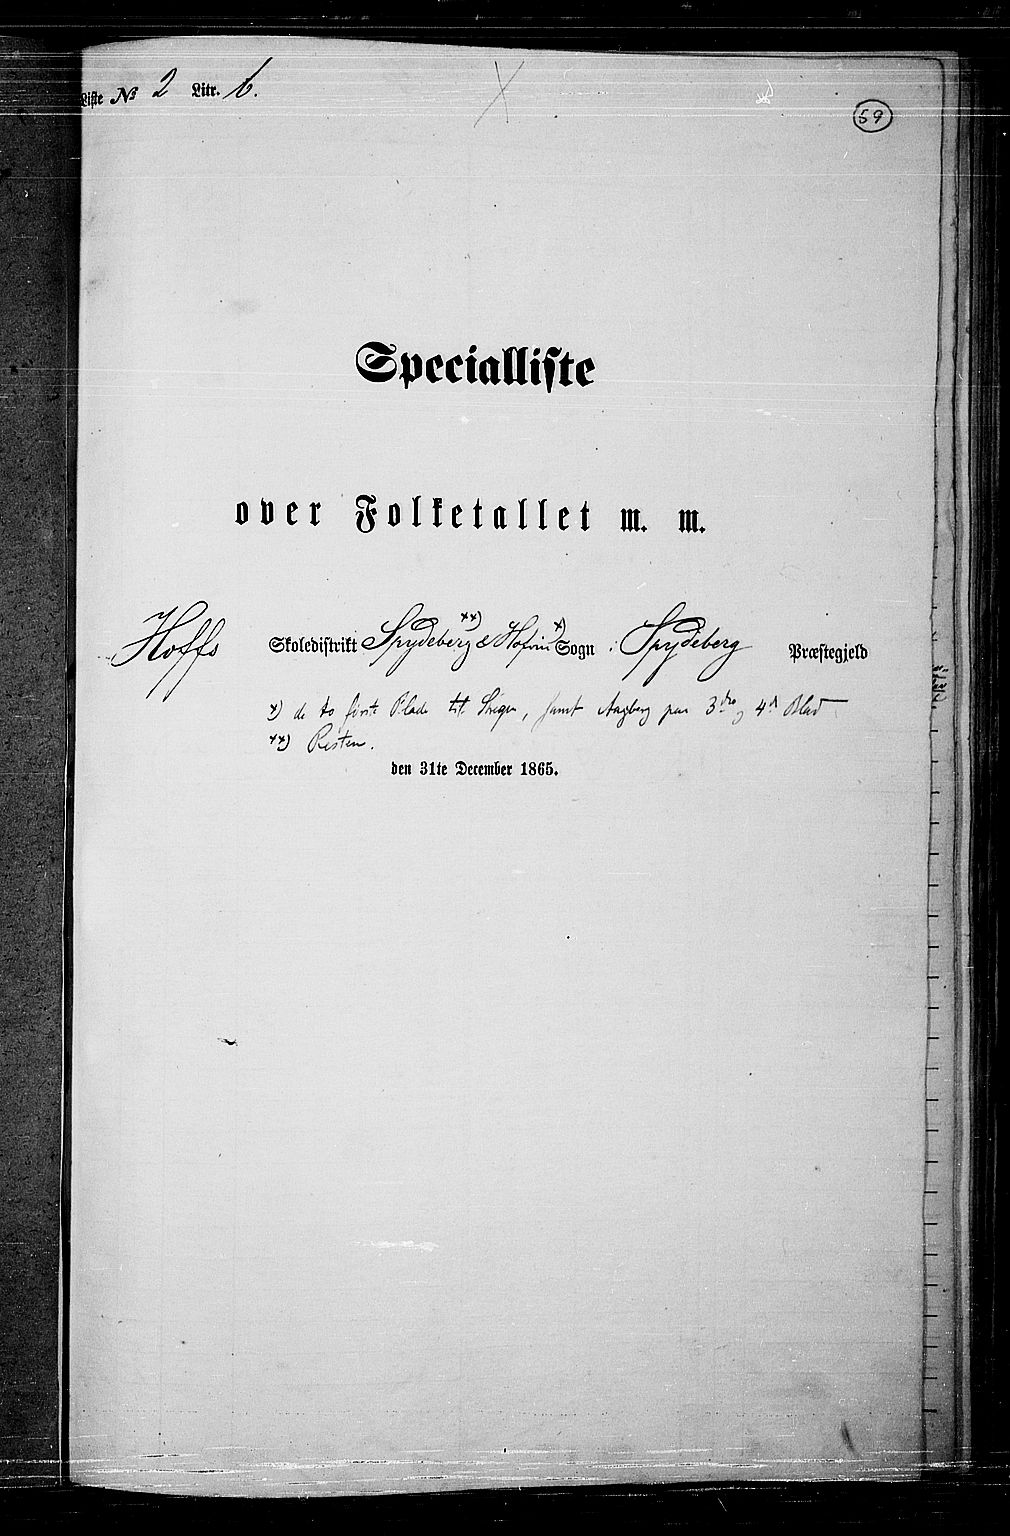 Liste № 2 Litr. b.
59
Specialliste
over Folketallet m. m.
Hoffs Skoledistrikt Spydeberg xx) & Hofvin x) Sogn i Spydeberg Præstegjeld
x) de to første Blade til Stregen, samt Aagberg paa 3die og 4de Blad
xx) Resten.
den 31te December 1865.